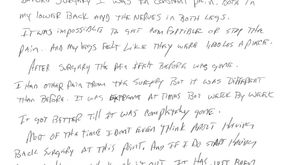 BEFORE SURGERY I WAS IN CONSTANT PAIN. BOTH IN
MY LOWER BACK AND THE NERVES IN BOTH LEGS.
IT WAS IMPOSSIBLE TO GET COMFORTABLE OR STOP THE
PAIN. AND MY LEGS FELT LIKE THEY WERE 1000LBS APIECE.
AFTER SURGERY THE PAIN FELT BEFORE WAS GONE.
I HAD OTHER PAIN FROM THE SURGERY BUT IT WAS DIFFERENT
THAN BEFORE. IT WAS EXTREME AT TIMES BUT WEEK BY WEEK
IT GOT BETTER TILL IT WAS COMPLETELY GONE.
MOST OF THE TIME I DON'T EVEN THINK ABOUT HAVING
BACK SURGERY AT THIS POINT. AND IF I DO START HAVING
IT HAS JUST ABOUT